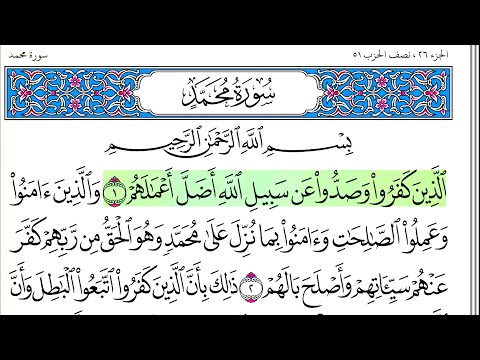 الجزء ٢٦، نصف الحزب ٥١
سورة محمد
سُورَةُ مُحَمَّدٍ
بِسْمِ اللَّهِ الرَّحْمَٰنِ الرَّحِيمِ
الَّذِينَ كَفَرُوا۟ وَصَدُّوا۟ عَن سَبِيلِ اللَّهِ أَضَلَّ أَعْمَٰلَهُمْ ١ وَالَّذِينَ ءَامَنُوا۟
وَعَمِلُوا۟ الصَّٰلِحَٰتِ وَءَامَنُوا۟ بِمَا نُزِّلَ عَلَىٰ مُحَمَّدٍ وَهُوَ الْحَقُّ مِن رَّبِّهِمْ كَفَّرَ
عَنْهُمْ سَيِّـَٔاتِهِمْ وَأَصْلَحَ بَالَهُمْ ٢ ذَٰلِكَ بِأَنَّ الَّذِينَ كَفَرُوا۟ اتَّبَعُوا۟ الْبَٰطِلَ وَأَنَّ